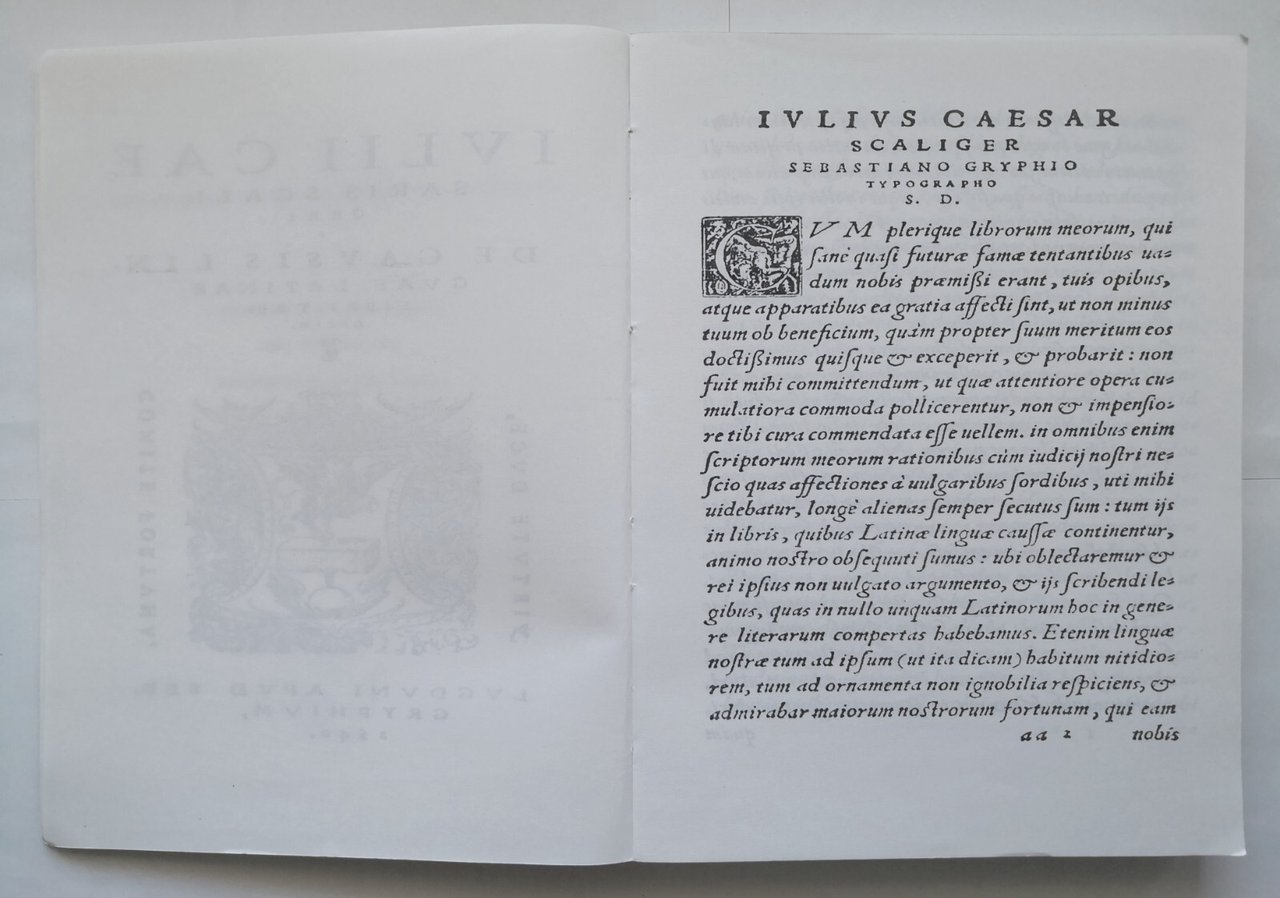 IVLIVS CAESAR
SCALIGER
SEBASTIANO GRYPHIO
TYPOGRAPHO
S. D.
CVM plerique librorum meorum, qui
ſanè quaſi futuræ famæ tentantibus ua-
dum nobis præmißi erant, tuis opibus,
atque apparatibus ea gratia affecti ſint, ut non minus
tuum ob beneficium, quàm propter ſuum meritum eos
doctißimus quiſque & exceperit, & probarit: non
fuit mihi committendum, ut quæ attentiore opera cu-
mulatiora commoda pollicerentur, non & impenſio-
re tibi cura commendata eſſe uellem. in omnibus enim
ſcriptorum meorum rationibus cùm iudicij noſtri ne-
ſcio quas affectiones à uulgaribus ſordibus, uti mihi
uidebatur, longè alienas ſemper ſecutus ſum: tum ijs
in libris, quibus Latinæ linguæ cauſſæ continentur,
animo noſtro obſequuti ſumus: ubi oblectaremur &
rei ipſius non uulgato argumento, & ijs ſcribendi le-
gibus, quas in nullo unquam Latinorum hoc in gene-
re literarum compertas habebamus. Etenim linguæ
noſtræ tum ad ipſum (ut ita dicam) habitum nitidio-
rem, tum ad ornamenta non ignobilia reſpiciens, &
admirabar maiorum noſtrorum fortunam, qui eam
aa 2 nobis